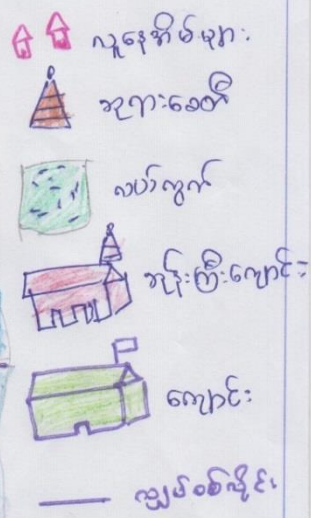 လူနေအိမ်များ
ဘုရားစေတီ
လယ်ကွက်
ဘုန်းကြီးကျောင်း
ကျောင်း
လျှပ်စစ်လိုင်း